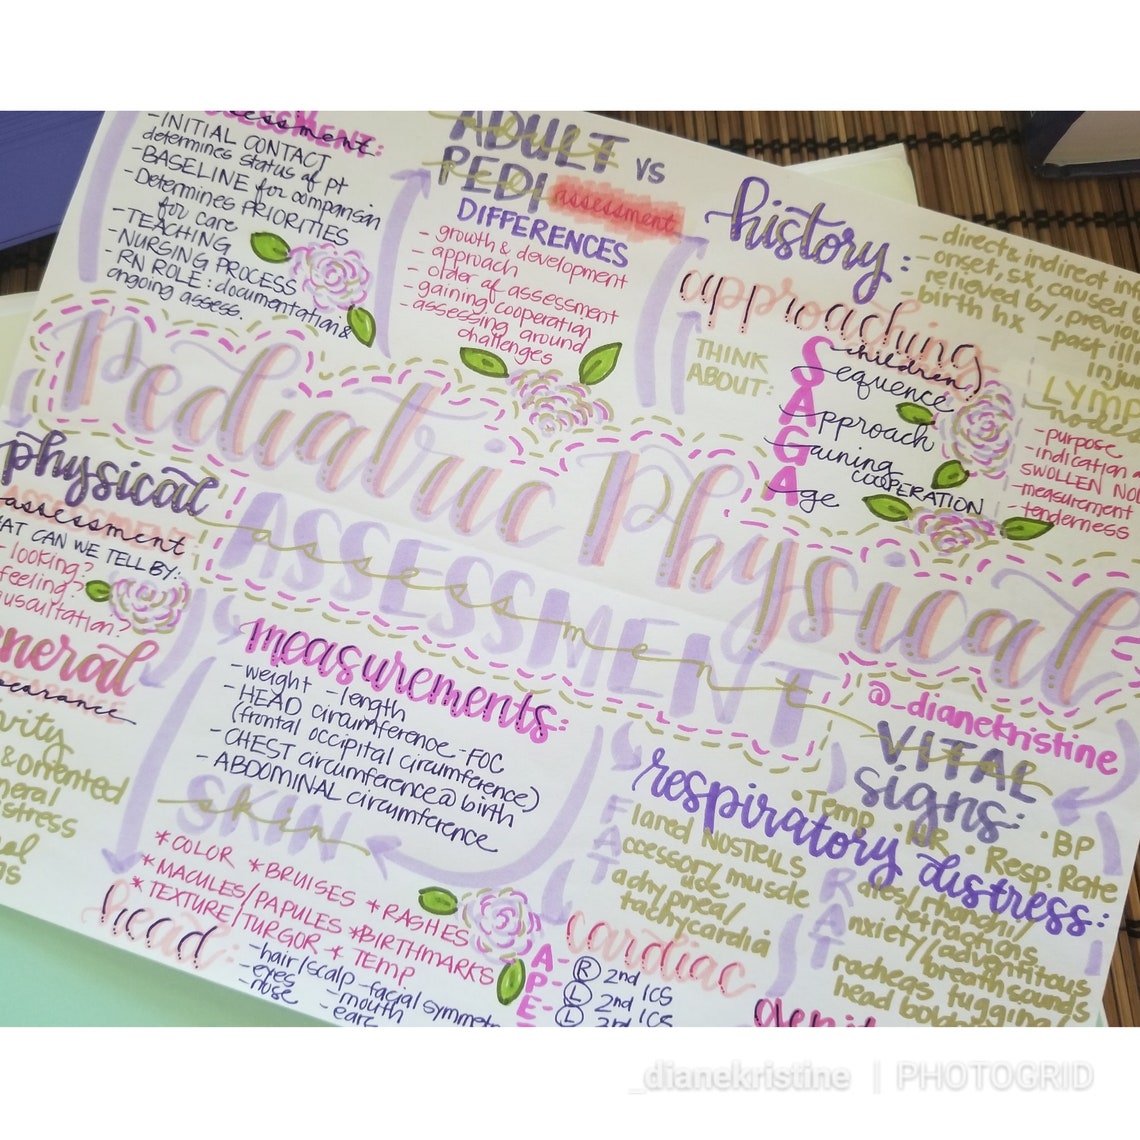 ASSESSMENT:
- INITIAL CONTACT
determines status of pt
- BASELINE for comparison
for care
- Determines PRIORITIES
- TEACHING
- NURSING PROCESS
- RN ROLE: documentation &
ongoing assess.
ADULT vs
PEDI assessment
DIFFERENCES
- growth & development
- approach
- order of assessment
- gaining cooperation
- assessing around
challenges
history:
- direct & indirect
- onset, sx, caused
relieved by, previous
- birth hx
- past
approaching
children)
THINK
ABOUT:
Sequence
Approach
Gaining
COOPERATION
Age
- purpose
- indication
SWOLLEN
- measurement
- tenderness
Pediatric Physical
ASSESSMENT
assessment
@_dianekristine
physical
ASSESSMENT
assessment
CAN WE TELL BY:
- looking?
feeling?
auscultation?
& oriented
measurements:
- weight - length
- HEAD circumference - FOC
(frontal occipital circumference)
- CHEST circumference @ birth
- ABDOMINAL circumference
SKIN
skin
* COLOR * BRUISES * RASHES
* MACULES/PAPULES * BIRTHMARKS
* TEXTURE/TURGOR * TEMP
head:
- hair/scalp - facial
- eyes - mouth
- nose
VITAL
signs:
• Temp • HR • Resp. Rate • BP
respiratory distress:
Flared NOSTRILS
Accessory muscle
use
Tachypnea/
tachycardia
Rales/rhonchi/
retractions
Anxiety/adventitous
breath sounds
Tracheas tugging/
head
cardiac
A- R 2nd ICS
P- L 2nd ICS
E- L
_dianekristine | PHOTOGRID